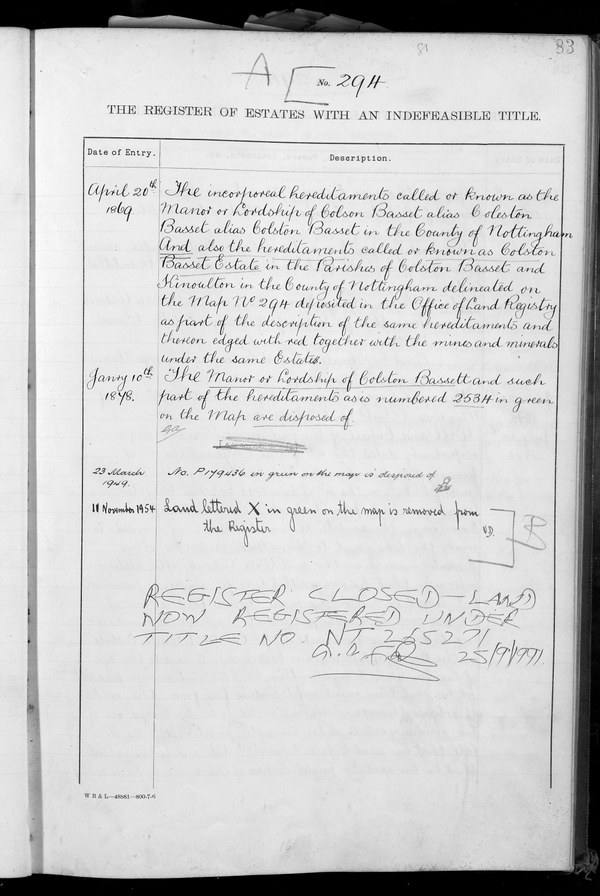 81
83
A
No. 294
THE REGISTER OF ESTATES WITH AN INDEFEASIBLE TITLE.
Date of Entry.
Description.
April 20th 1869
The incorporeal hereditaments called or known as the
Manor or Lordship of Colson Basset alias Coleston
Basset alias Colston Basset in the County of Nottingham
And also the hereditaments called or known as Colston
Basset Estate in the Parishes of Colston Basset and
Kinoulton in the County of Nottingham delineated on
the Map No 294 deposited in the Office of Land Registry
as part of the description of the same hereditaments and
thereon edged with red together with the mines and minerals
under the same Estates.
Janry 10th 1878.
The Manor or Lordship of Colston Bassett and such
part of the hereditaments as is numbered 2534 in green
on the Map are disposed of
23 March 1949.
No. P179436 in green on the map is disposed of
18 November 1954
Land lettered X in green on the map is removed from
the Register
V.D.
B
REGISTER CLOSED - LAND
NOW REGISTERED UNDER
TITLE NO. NT 265271
25/9/1991.
W B & L—48881—800-7-6